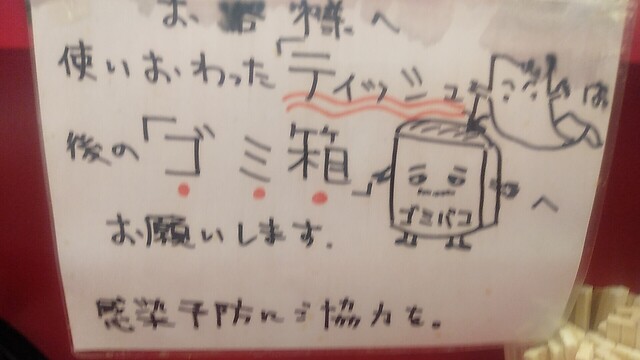 お客様へ
使いおわった「ティッシュ」は
後の「ゴミ箱」へ
ゴミバコ
お願いします.
感染予防にご協力を。